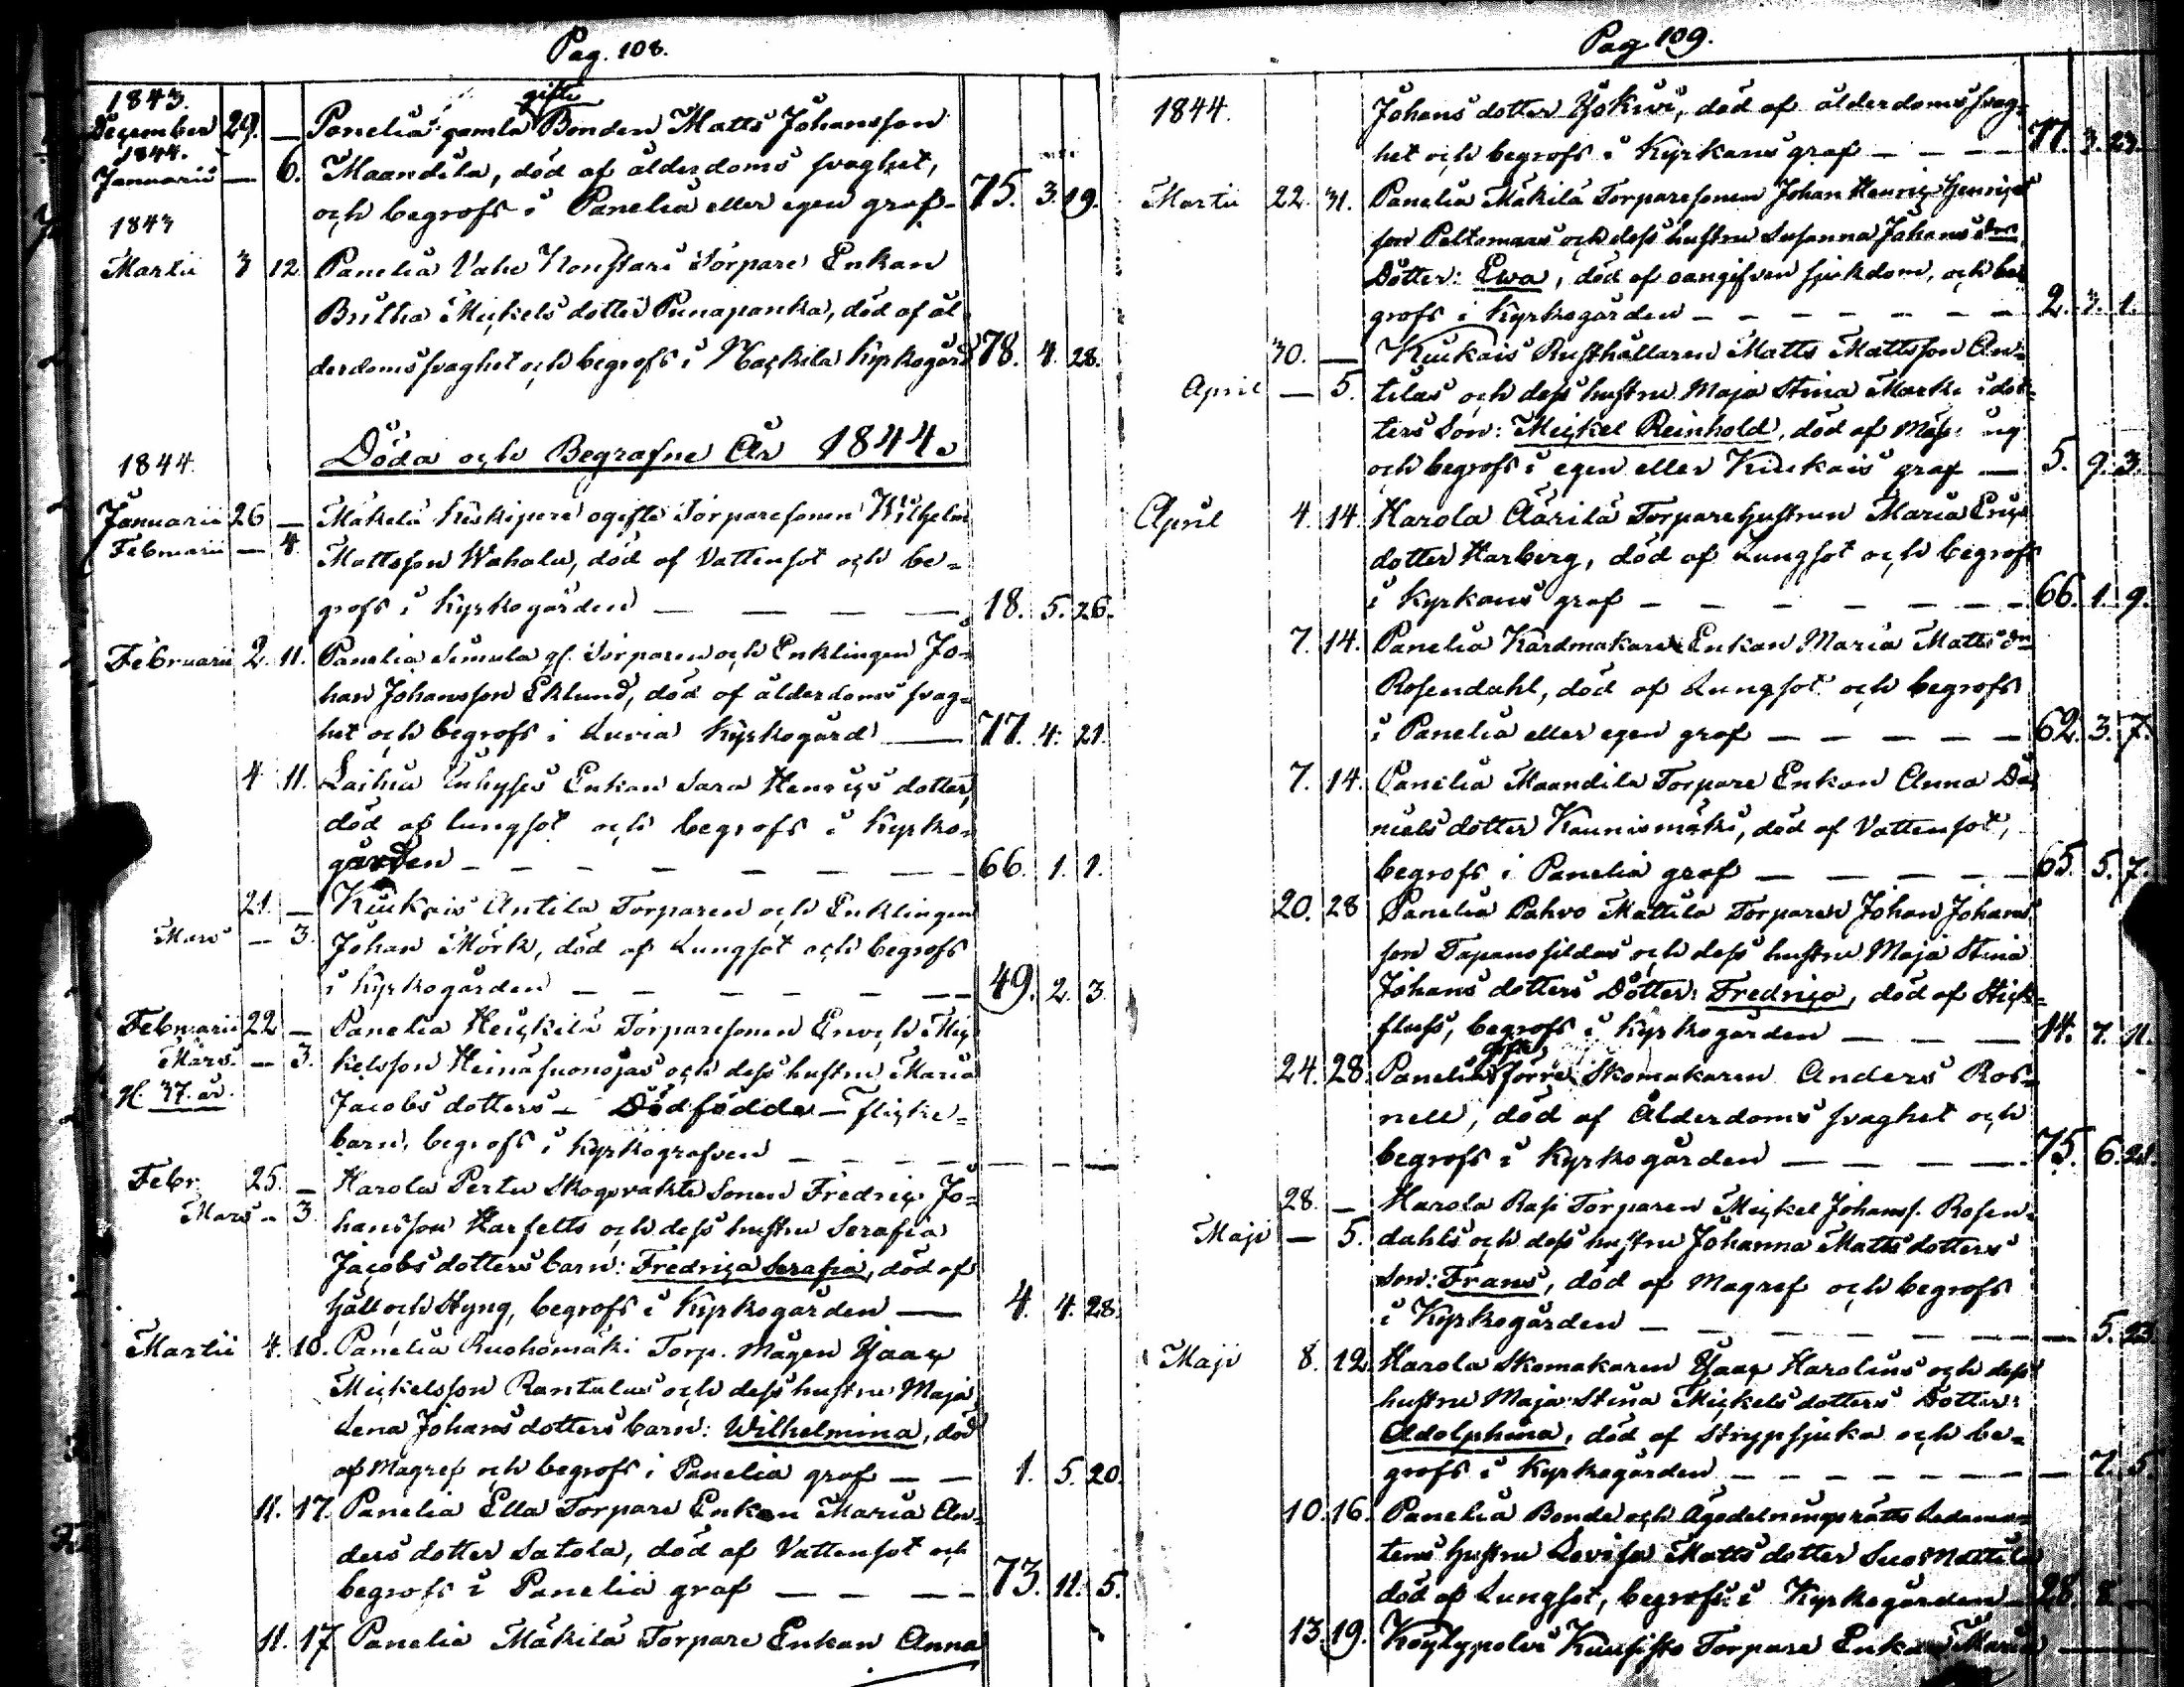 Pag. 108.
1843.
gifte
December 29. — Panelia gamla Bonden Matts Johansson
1844.
Januarii — 6. Maandila, död af ålderdoms svaghet,
och begrofs i Panelia eller egen graf - 75. 3. 19.
1843
Martii 3 12. Panelia Vahe Konstari Torpare Enkan
Britha Mickels dotter Punapanka, död af ål
derdomssvaghet och begrofs i Nackila Kyrkogård 78. 4. 28.
Döda och Begrafne År 1844.
1844.
Januarii 26 — Mäkelä Keskipere ogifte Torparesonen Wilhelm
Februarii — 4. Mattsson Wahala, död af Vattensot och be-
grofs i Kyrkogården — — — — 18. 5. 26.
Februarii 2. 11. Panelia Simula gl. Torparen och Enklingen Jo-
han Johansson Eklund, död af ålderdoms svag-
het och begrofs i Luvia Kyrkogård — 77. 4. 21.
4 11. Laihia Inhyses Enkan Sara Henrics dotter,
död af lungsot och begrofs i Kyrko-
gården - - - - - - 66. 1. 1.
21. — Kiukais Antila Torparen och Enklingen
Mars — 3. Johan Mörk, död af Lungsot och begrofs
i Kyrkogården - - - - - - 49. 2. 3.
Februarii 22 — Panelia Heickilä Torparesonen Enoch Mic
Mars. — 3. kelsson Heinäsuonojas och dess hustru Maria
gl. 37. år. Jacobs dotters — Dödfödde — flicke-
barn, begrofs i Kyrkografven - - - - - -
Febr. 25. — Harola Pertu Skogsvakte Sonen Fredric Jo-
Mars - 3. hansson Harfelts och dess hustru Serafia
Jacobs dotters barn: Fredrica Serafia, död af
håll och styng, begrofs i Kyrkogården — 4. 4. 28.
Martii 4. 10. Panelia Ruohomäki Torp. Mågen Isaac
Mickelsson Rantalas och dess hustru Maja
Lena Johans dotters barn: Wilhelmina, död
af Magref och begrofs i Panelia graf — — 1. 5. 20.
11. 17. Panelia Ella Torpare Enkan Maria An-
ders dotter Satola, död af Vattensot och
begrofs i Panelia graf — — — 73. 11. 5.
11. 17. Panelia Mäkilä Torpare Enkan Anna
Pag. 109.
1844. Johans dotter Yokivi, död af ålderdoms svag-
het och begrofs i Kyrkans graf - - - - 77. 3. 23.
Martii 22. 31. Panelia Mäkilä Torparesonen Johan Henric Henrics
son Peltomaas och dess hustru Susanna Johans drs
Dotter: Ewa, död af oangifven sjukdom, och be
grofs i Kyrkogården - - - - - - - 2. 3. 1.
30. — Kiukais Rusthållaren Matts Mattsson An-
April — 5. tilas och dess hustru Maja Stina dot-
ters Son: Mickel Reinhold, död af
och begrofs i egen eller Kiukais graf — 5. 9. 3.
April 4. 14. Harola Äärilä Torparehustrun Maria Erics
dotter Harberg, död af Lungsot och begrofs
i Kyrkans graf - - - - - - - 66. 1. 9.
7. 14. Panelia Kardmakare Enkan Maria Matts dr
Rosendahl, död af Lungsot och begrofs
i Panelia eller egen graf - - - - - 62. 3. 7.
7. 14. Panelia Maandila Torpare Enkan Anna Da
niels dotter Kaunismäki, död af Vattensot,
begrofs i Panelia graf — — — — 65. 5. 7.
20. 28 Panelia Pahvo Mattila Torparen Johan Johans
son Tapanssildas och dess hustru Maja Stina
Johans dotters Dotter: Fredrica, död af Stick-
fluss, begrofs i Kyrkogården — — — 14. 7. 11.
gifte
24. 28. Panelia förre Skomakaren Anders Ros-
nell, död af Ålderdoms svaghet och
begrofs i Kyrkogården — — — — 75. 6. 21.
28. — Harola Rasi Torparen Mickel Johanss. Rosen-
Maji — 5. dahls och dess hustru Johanna Matts dotters
Son: Frans, död af Magref och begrofs
i Kyrkogården - - - - - - - — 5. 23.
Maji 8. 12. Harola Skomakaren Isaac Harolins och dess
hustru Maja Stina Mickels dotters Dotter:
Adolphina, död af Strypsjuka och be-
grofs i Kyrkogården - - - - - - - — 7. 5.
10. 16. Panelia Bonde och Ägodelningsrätts Ledamo-
tens hustru Lovisa Matts dotter Mattila
död af Lungsot, begrofs i Kyrkogården - 28. 8. —
13. 19. Köylypolvi Kuusisto Torpare Enkan Maria —